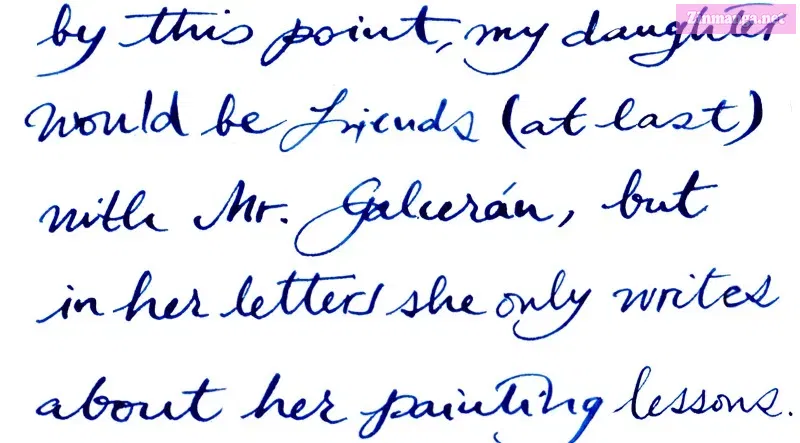 Zinmanga.net
by this point, my daughter
would be friends (at last)
with Mr. Galcerán, but
in her letters she only writes
about her painting lessons.